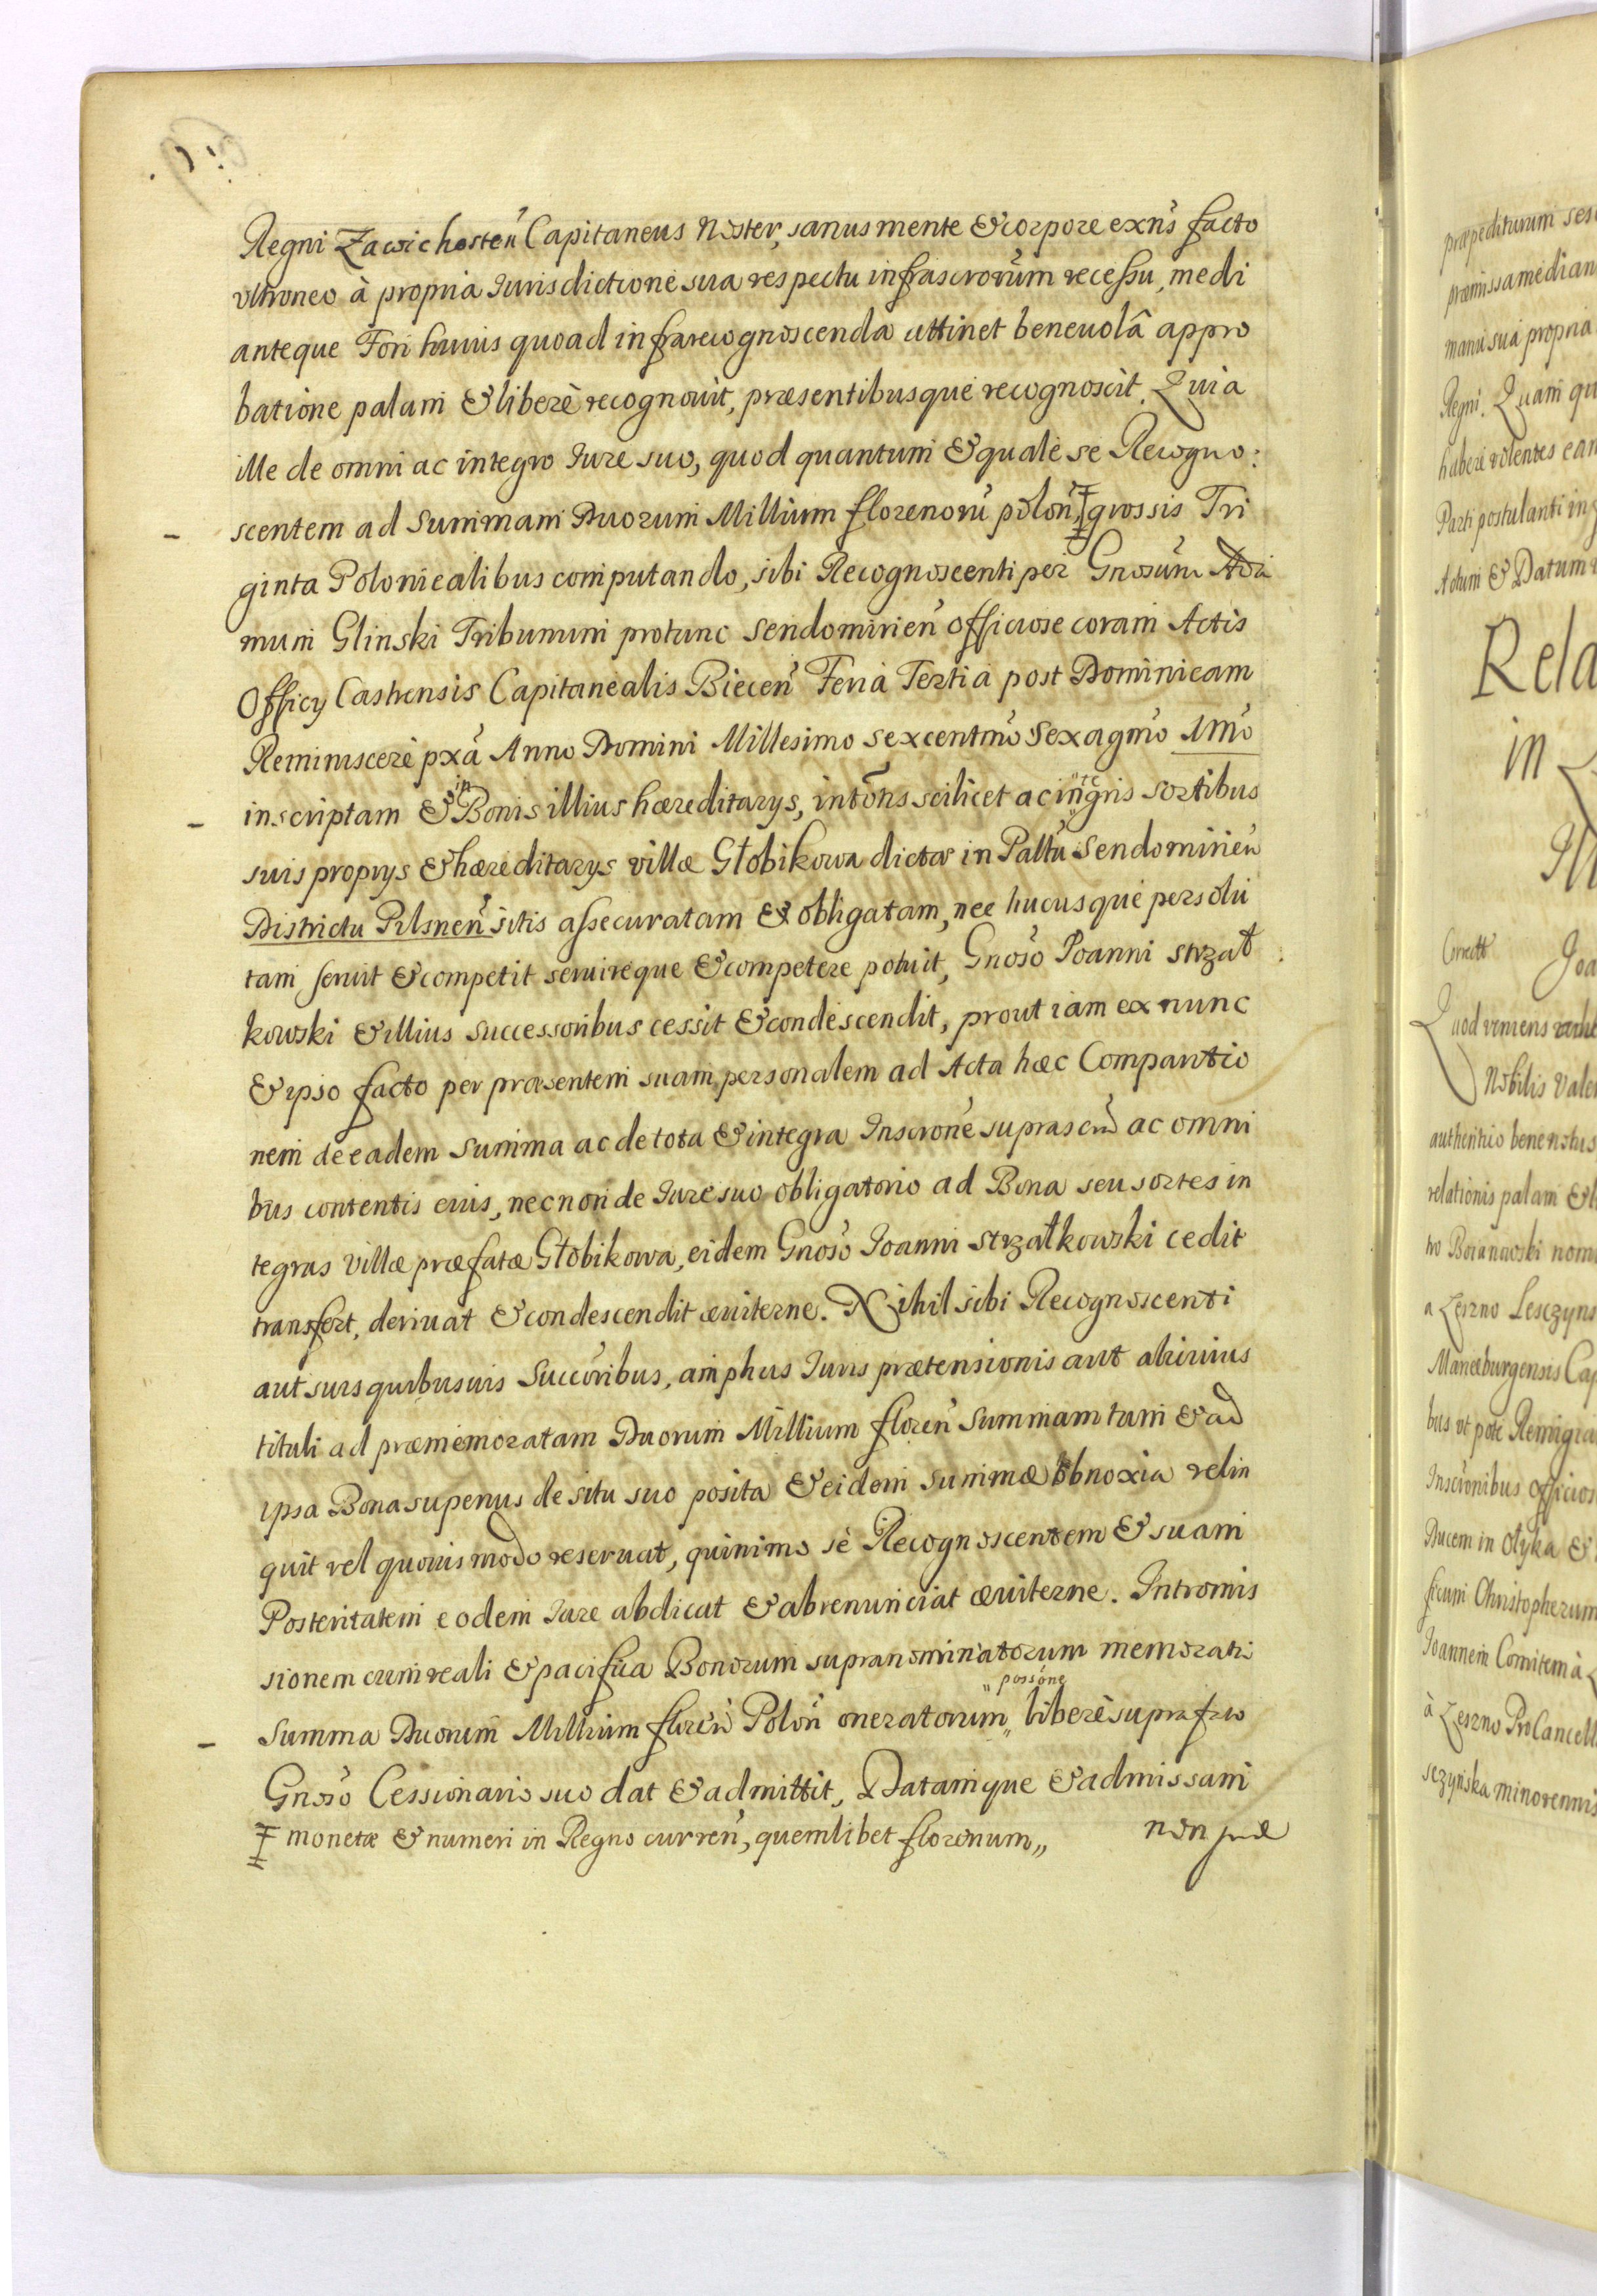 Regni Zawichosten̄ Capitaneus Noster, sanus mente & corpore exn̄s facto
vltroneo à propria Jurisdictione sua respectu infrascrorūm recessu, medi
anteque Fori huius quoad infrarecognoscenda attinet beneuolâ appro
batione palam & liberè recognouit, præsentibusque recognoscit. Quia
ille de omni ac integro Jure suo, quod quantum & quale se Recogno:
scentem ad Summam Duorum Millium florenorū polon̄ grossis Tri
ginta Polonicalibus computando, sibi Recognoscenti per Gnosūm Ada
mum Glinski Tribunum protunc Sendomirien̄ officiose coram Actis
Officy Castrensis Capitanealis Biecen̄ Feria Tertia post Dominicam
Reminiscere pxā Anno Domini Millesimo sexcentmō Sexagmō 1mō
inscriptam & in Bonis illius hæreditarys, intōns scilicet ac integris sortibus
suis proprys & hæreditarys villæ Głobikowa dictæ in Paltū Sendomirien̄
Districtu Pilsnen̄ sitis assecuratam & obligatam, nec hucusque persolu
tam seruit & competit seruireque & competere potuit, Gnosō Joanni Strzał
kowski & illius Successoribus cessit & condescendit, prout iam ex nunc
& ipso facto per præsentem suam personalem ad Acta hæc Compartio
nem de eadem Summa ac de tota & integra Inscrone suprascrū ac omni
bus contentis eius, necnon de Jure suo obligatorio ad Bona seu sortes in
tegras villæ præfatæ Głobikowa, eidem Gnosō Joanni Strzałkowski cedit
transfert, deriuat & condescendit æuiterne. Nihil sibi Recognoscenti
aut suis quibusuis Succōribus, amplius Juris prætensionis aut alicuius
tituli ad præmemoratam Duorum Millium floren̄ Summam tum & ad
ipsa Bona superius de situ suo posita & eidem Summæ obnoxia relin
quit vel quouis modo reseruat, quinimo se Recognoscentem & suam
Posteritatem eodem Jure abdicat & abrenunciat æuiterne. Intromis
sionem cum reali & pacifica Bonorum supranominatorum memorati
Summa Duorum Millium floren̄ Polon̄ oneratorum „ possōne „ liberè suprafato
Gnosō Cessionario suo dat & admittit, Datamque & admissam
monetæ & numeri in Regno curren̄, quemlibet florenum „ non præ
præpediturum sese
præmissa median
manu sua propria
Regni. Quam qu
habere volentes ean
Parti postulanti in
Actum & Datum
Rela
in
Correctt Joa
Quod veniens
Nobilis Vale
authentico bene notus
relationis palam & li
Boianowski nom
a Leszno Lesczyns
Cap
bus vt pote Remigia
Inscrōnibus officios
Ducem in Olyka &
Christopherum
Joannem Comitem à L
à Leszno ProCancell
sczynska minorennis